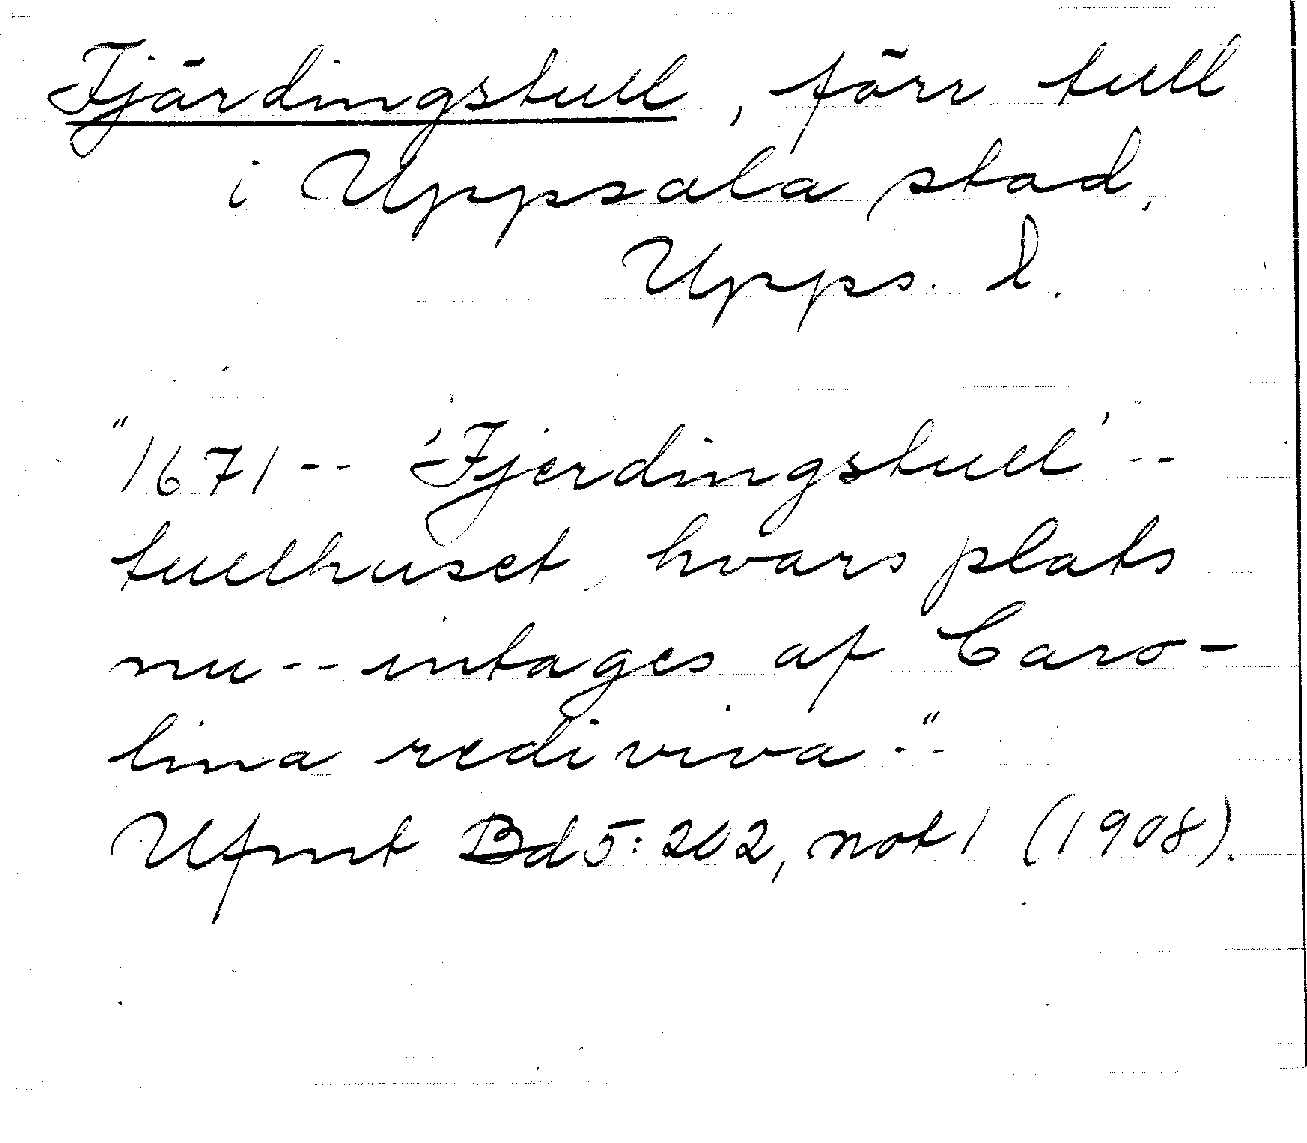 Fjärdingstull, förr tull
i Uppsala stad,
Upps. l.
"1671-- 'Fjerdingstull'--
tullhuset, hvars plats
nu -- intages af Caro-
lina rediviva --"
Ufmt Bd 5: 202, not 1 (1908).